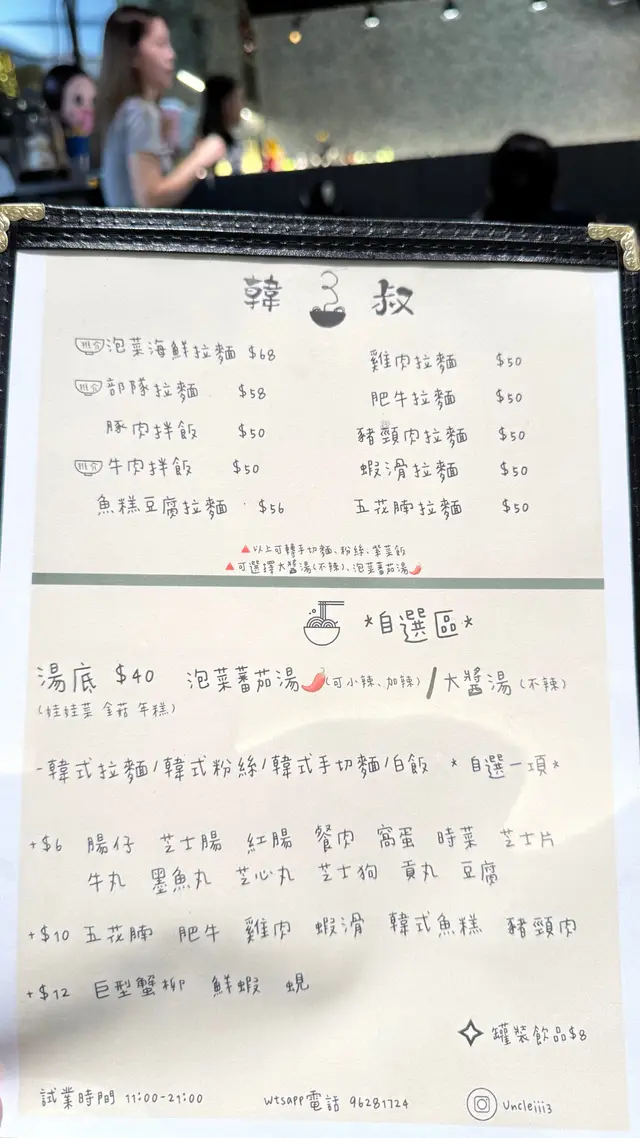 韓 叔
推介 泡菜海鮮拉麵 $68
推介 部隊拉麵 $58
豚肉拌飯 $50
推介 牛肉拌飯 $50
魚糕豆腐拉麵 $56
雞肉拉麵 $50
肥牛拉麵 $50
豬頸肉拉麵 $50
蝦滑拉麵 $50
五花腩拉麵 $50
▲以上可轉手切麵、粉絲、紫菜飯
▲可選擇大醬湯(不辣)、泡菜蕃茄湯🌶️
*自選區*
湯底 $40 泡菜蕃茄湯🌶️(可小辣、加辣) / 大醬湯 (不辣)
(娃娃菜 金菇 年糕)
-韓式拉麵/韓式粉絲/韓式手切麵/白飯 *自選一項*
+$6 腸仔 芝士腸 紅腸 餐肉 窩蛋 時菜 芝士片
牛丸 墨魚丸 芝心丸 芝士狗 貢丸 豆腐
+$10 五花腩 肥牛 雞肉 蝦滑 韓式魚糕 豬頸肉
+$12 巨型蟹柳 鮮蝦 蜆
罐裝飲品$8
試業時間 11:00-21:00 wtsapp電話 96281724 Uncleiii3